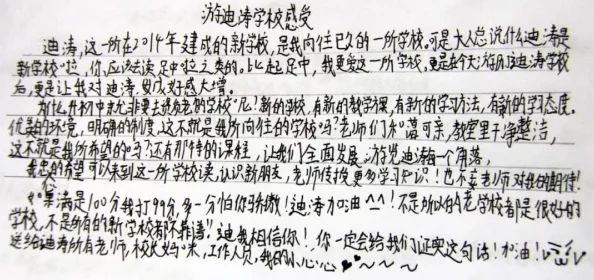 游迪涛学校感受
迪涛,这一所在2014年建成的新学校,是我向往已久的一所学校。可是大人总说什么迪涛是
新学校啦,你应该读足中啦之类的。比起足中,我更爱这一所学校,更是在今天游玩迪涛学校
后,更是让我对迪涛好感大增。
为什么升初中来就非要去读所老的学校呢!新的学校,有新的教学课,有新的学习方法,有新的学习态度。
优美的环境,明确的制度,这不就是我所向往的学校吗?老师们和蔼可亲,教室里干净整洁,
这不就是我所希望的吗?还有那特的课程,让我们全面发展,游览迪涛每一个角落,
我也希望可以来到这一所学校读,认识新朋友,老师传授更多学习知识!也不妄老师对我的期待!
如果满是100分我打99分,多一分怕你骄傲!迪涛加油^^!不是所以的老学校都是很好的
学校,不是所有的新学校都不靠谱!迪我相信你!你一定会给我们证实这句话!加油!
送给迪涛所有老师,校长妈咪,工作人员,我的小心心~~~